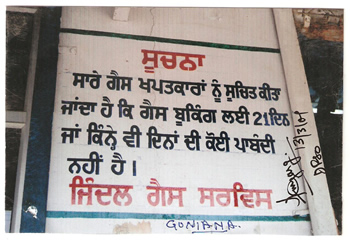 ਸੂਚਨਾ
ਸਾਰੇ ਗੈਸ ਖਪਤਕਾਰਾਂ ਨੂੰ ਸੂਚਿਤ ਕੀਤਾ
ਜਾਂਦਾ ਹੈ ਕਿ ਗੈਸ ਬੁਕਿੰਗ ਲਈ 21 ਦਿਨ
ਜਾਂ ਕਿੰਨੇ ਵੀ ਦਿਨਾਂ ਦੀ ਕੋਈ ਪਾਬੰਦੀ
ਨਹੀਂ ਹੈ।
ਜਿੰਦਲ ਗੈਸ ਸਰਵਿਸ
GONIANA.